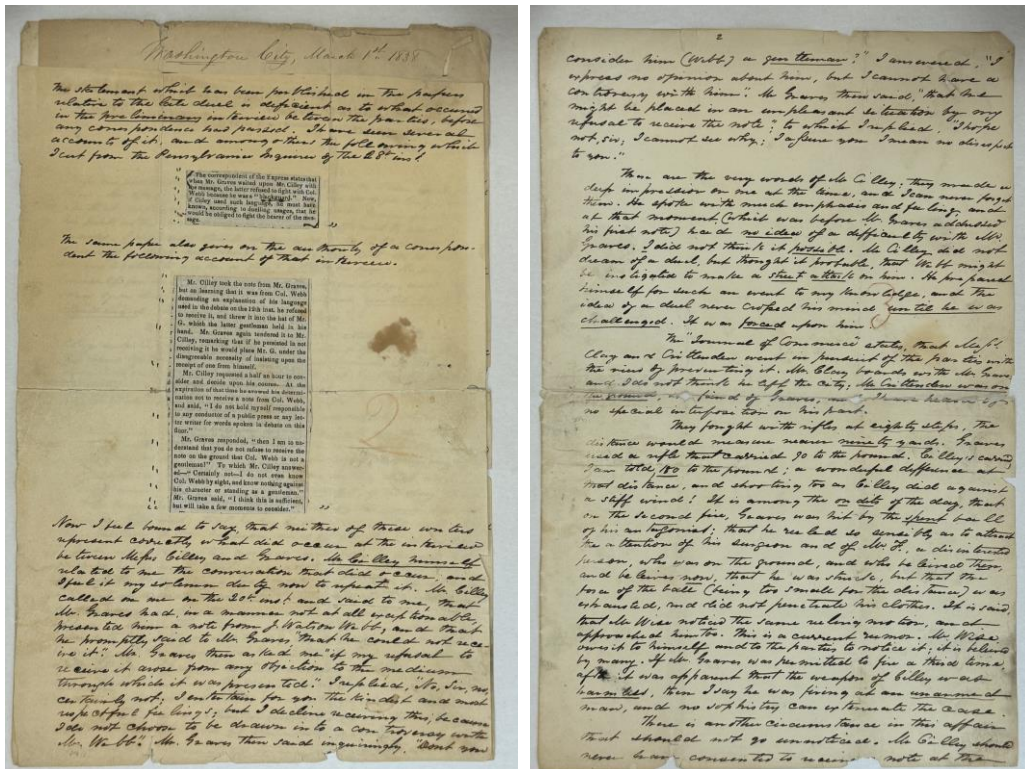 Washington City, March 1st 1838
The statement which has been published in the papers
relative to the late duel is deficient as to what occurred
in the preliminary interview between the parties, before
any correspondence had passed. I have seen several
accounts of it, and among others the following which
I cut from the Pennsylvania Inquirer of the 28th inst
The correspondent of the Express states that
when Mr. Graves waited upon Mr. Cilley with
the message, the latter refused to fight with Col.
Webb because he was a "blackguard." Now,
if Cilley used such language, he must have
known, according to duelling usages, that he
would be obliged to fight the bearer of the mes-
sage.
The same paper also gives on the authority of a correspon-
dent the following account of that interview.
Mr. Cilley took the note from Mr. Graves,
but on learning that it was from Col. Webb
demanding an explanation of his language
used in the debate on the 12th inst. he refused
to receive it, and threw it into the hat of Mr.
G. which the latter gentleman held in his
hand. Mr. Graves again tendered it to Mr.
Cilley, remarking that if he persisted in not
receiving it he would place Mr. G. under the
disagreeable necessity of insisting upon the
receipt of one from himself.
Mr. Cilley requested a half an hour to con-
sider and decide upon his course. At the
expiration of that time he avowed his determi-
cation not to receive a note from Col. Webb,
and said, "I do not hold myself responsible
to any conductor of a public press or any let-
ter writer for words spoken in debate on this
floor."
Mr. Graves responded, "then I am to un-
derstand that you do not refuse to receive the
note on the ground that Col. Webb is not a
gentleman?" To which Mr. Cilley answer-
ed—"Certainly not—I do not even know
Col. Webb by sight, and know nothing against
his character or standing as a gentleman."
Mr. Graves said, "I think this is sufficient,
but will take a few moments to consider."
Now I feel bound to say, that neither of these writers
represent correctly what did occur at the interview
between Messrs Cilley and Graves. Mr Cilley himself
related to me the conversation that did occur, and
I feel it my solemn duty now to repeat it. Mr. Cilley
called on me on the 20th inst and said to me, that
Mr. Graves had, in a manner not at all exceptionable
presented him a note from J. Watson Webb, and that
he promptly said to Mr. Graves, "that he could not rece-
ive it." Mr. Graves then asked me "if my refusal to
receive it arose from any objection to the medium
through which it was presented." I replied, "No, Sir, no,
certainly not; I entertain for you the kindest and most
respectful feelings; but I decline receiving this, because
I do not choose to be drawn into a controversy with
Mr. Webb." Mr. Graves then said inquiringly, "Dont you
2
2
consider him (Webb) a gentleman?" I answered, "I
express no opinion about him, but I cannot have a
controversy with him". Mr Graves then said, "that he
might be placed in an unpleasant situation by my
refusal to receive the note"; to which I replied, "I hope
not, sir; I cannot see why; I assure you I mean no disrespect
to you."
These are the very words of Mr Cilley; they made a
deep impression on me at the time, and I can never forget
them. He spoke with much emphasis and feeling, and
at that moment (which was before Mr. Graves addressed
his first note) had no idea of a difficulty with Mr.
Graves. I did not think it possible. Mr Cilley did not
dream of a duel, but thought it probable, that Webb might
be instigated to make a street attack on him. He prepared
himself for such an event to my knowledge, and the
idea of a duel never crossed his mind until he was
challenged. It was forced upon him.
The "Journal of Commerce" states, that Messrs
Clay and Crittenden went in pursuit of the parties with
the view of preventing it. Mr. Clay boards with Mr. Graves,
and I do not think he left the city; Mr Crittenden was on
the ground, a friend of Graves, and I have heard of
no special interposition on his part.
They fought with rifles at eighty steps, the
distance would measure nearer ninety yards. Graves
used a rifle that carried 90 to the pound. Cilley's carried
I am told, 180 to the pound; a wonderful difference at
that distance, and shooting too as Cilley did against
a stiff wind! It is among the on dits of the day, that
on the second fire, Graves was hit by the spent ball
of his antagonist; that he reeled so sensibly as to attract
the attention of his surgeon and of Mr F, a disinterested
person, who was on the ground, and who believed then,
and believes now, that he was struck, but that the
force of the ball (being too small for the distance) was
exhausted, and did not penetrate his clothes. It is said,
that Mr Wise noticed the same reeling motion, and
approached him too. This is a current rumor. Mr. Wise
owes it to himself and to the parties to notice it; it is believed
by many. If Mr. Graves was permitted to fire a third time,
after it was apparent that the weapon of Cilley was
harmless, then I say he was firing at an unarmed
man, and no sophistry can extenuate the case.
There is another circumstance in this affair
that should not go unnoticed. Mr Cilley should
never have consented to receive note at the